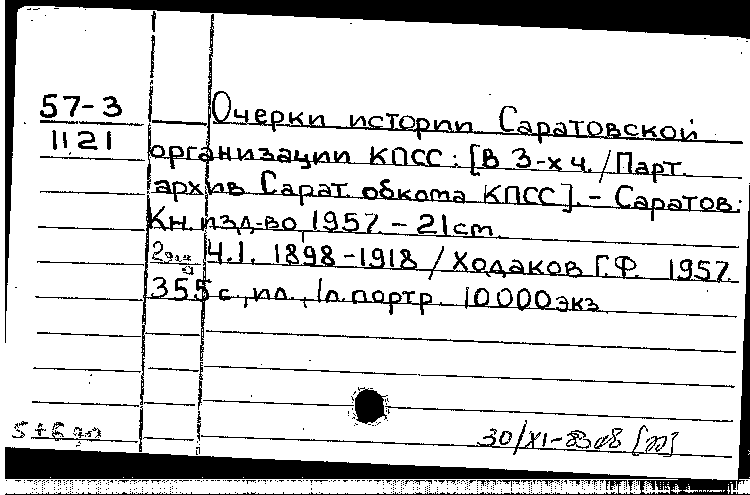 57-3
1121
Очерки истории Саратовской
организации КПСС: [В 3-х ч. / Парт.
архив Сарат. обкома КПСС]. - Саратов:
Кн. изд-во, 1957. - 21 см.
Ч.1. 1898-1918 / Ходаков Г.Ф. 1957.
355 с., ил., 1 л. портр. 10000 экз.
30/XI-83